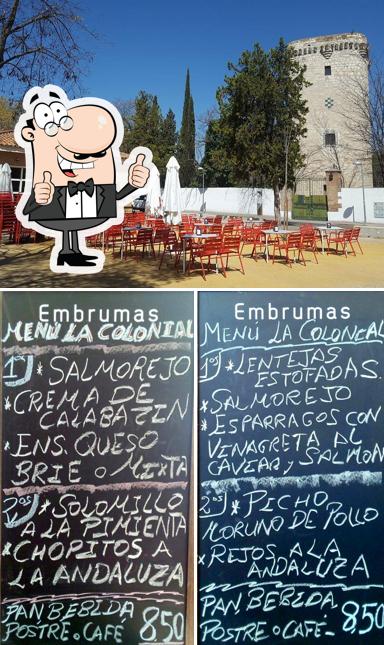 Embrumas
MENÚ LA COLONIAL
1os * SALMOREJO
* CREMA DE
CALABAZIN
* ENS. QUESO
BRIE o MIXTA
2os * SOLOMILLO
A LA PIMIENTA
* CHOPITOS A
LA ANDALUZA
PAN BEBIDA
POSTRE o CAFÉ 850
Embrumas
MENÚ LA COLONIAL
1os * LENTEJAS
ESTOFADAS
* SALMOREJO
* ESPARRAGOS CON
VINAGRETA AL
CAVIAR y SALMON
2os * PICHO
MORUNO DE POLLO
* REJOS A LA
ANDALUZA
PAN BEBIDA
POSTRE o CAFÉ - 850